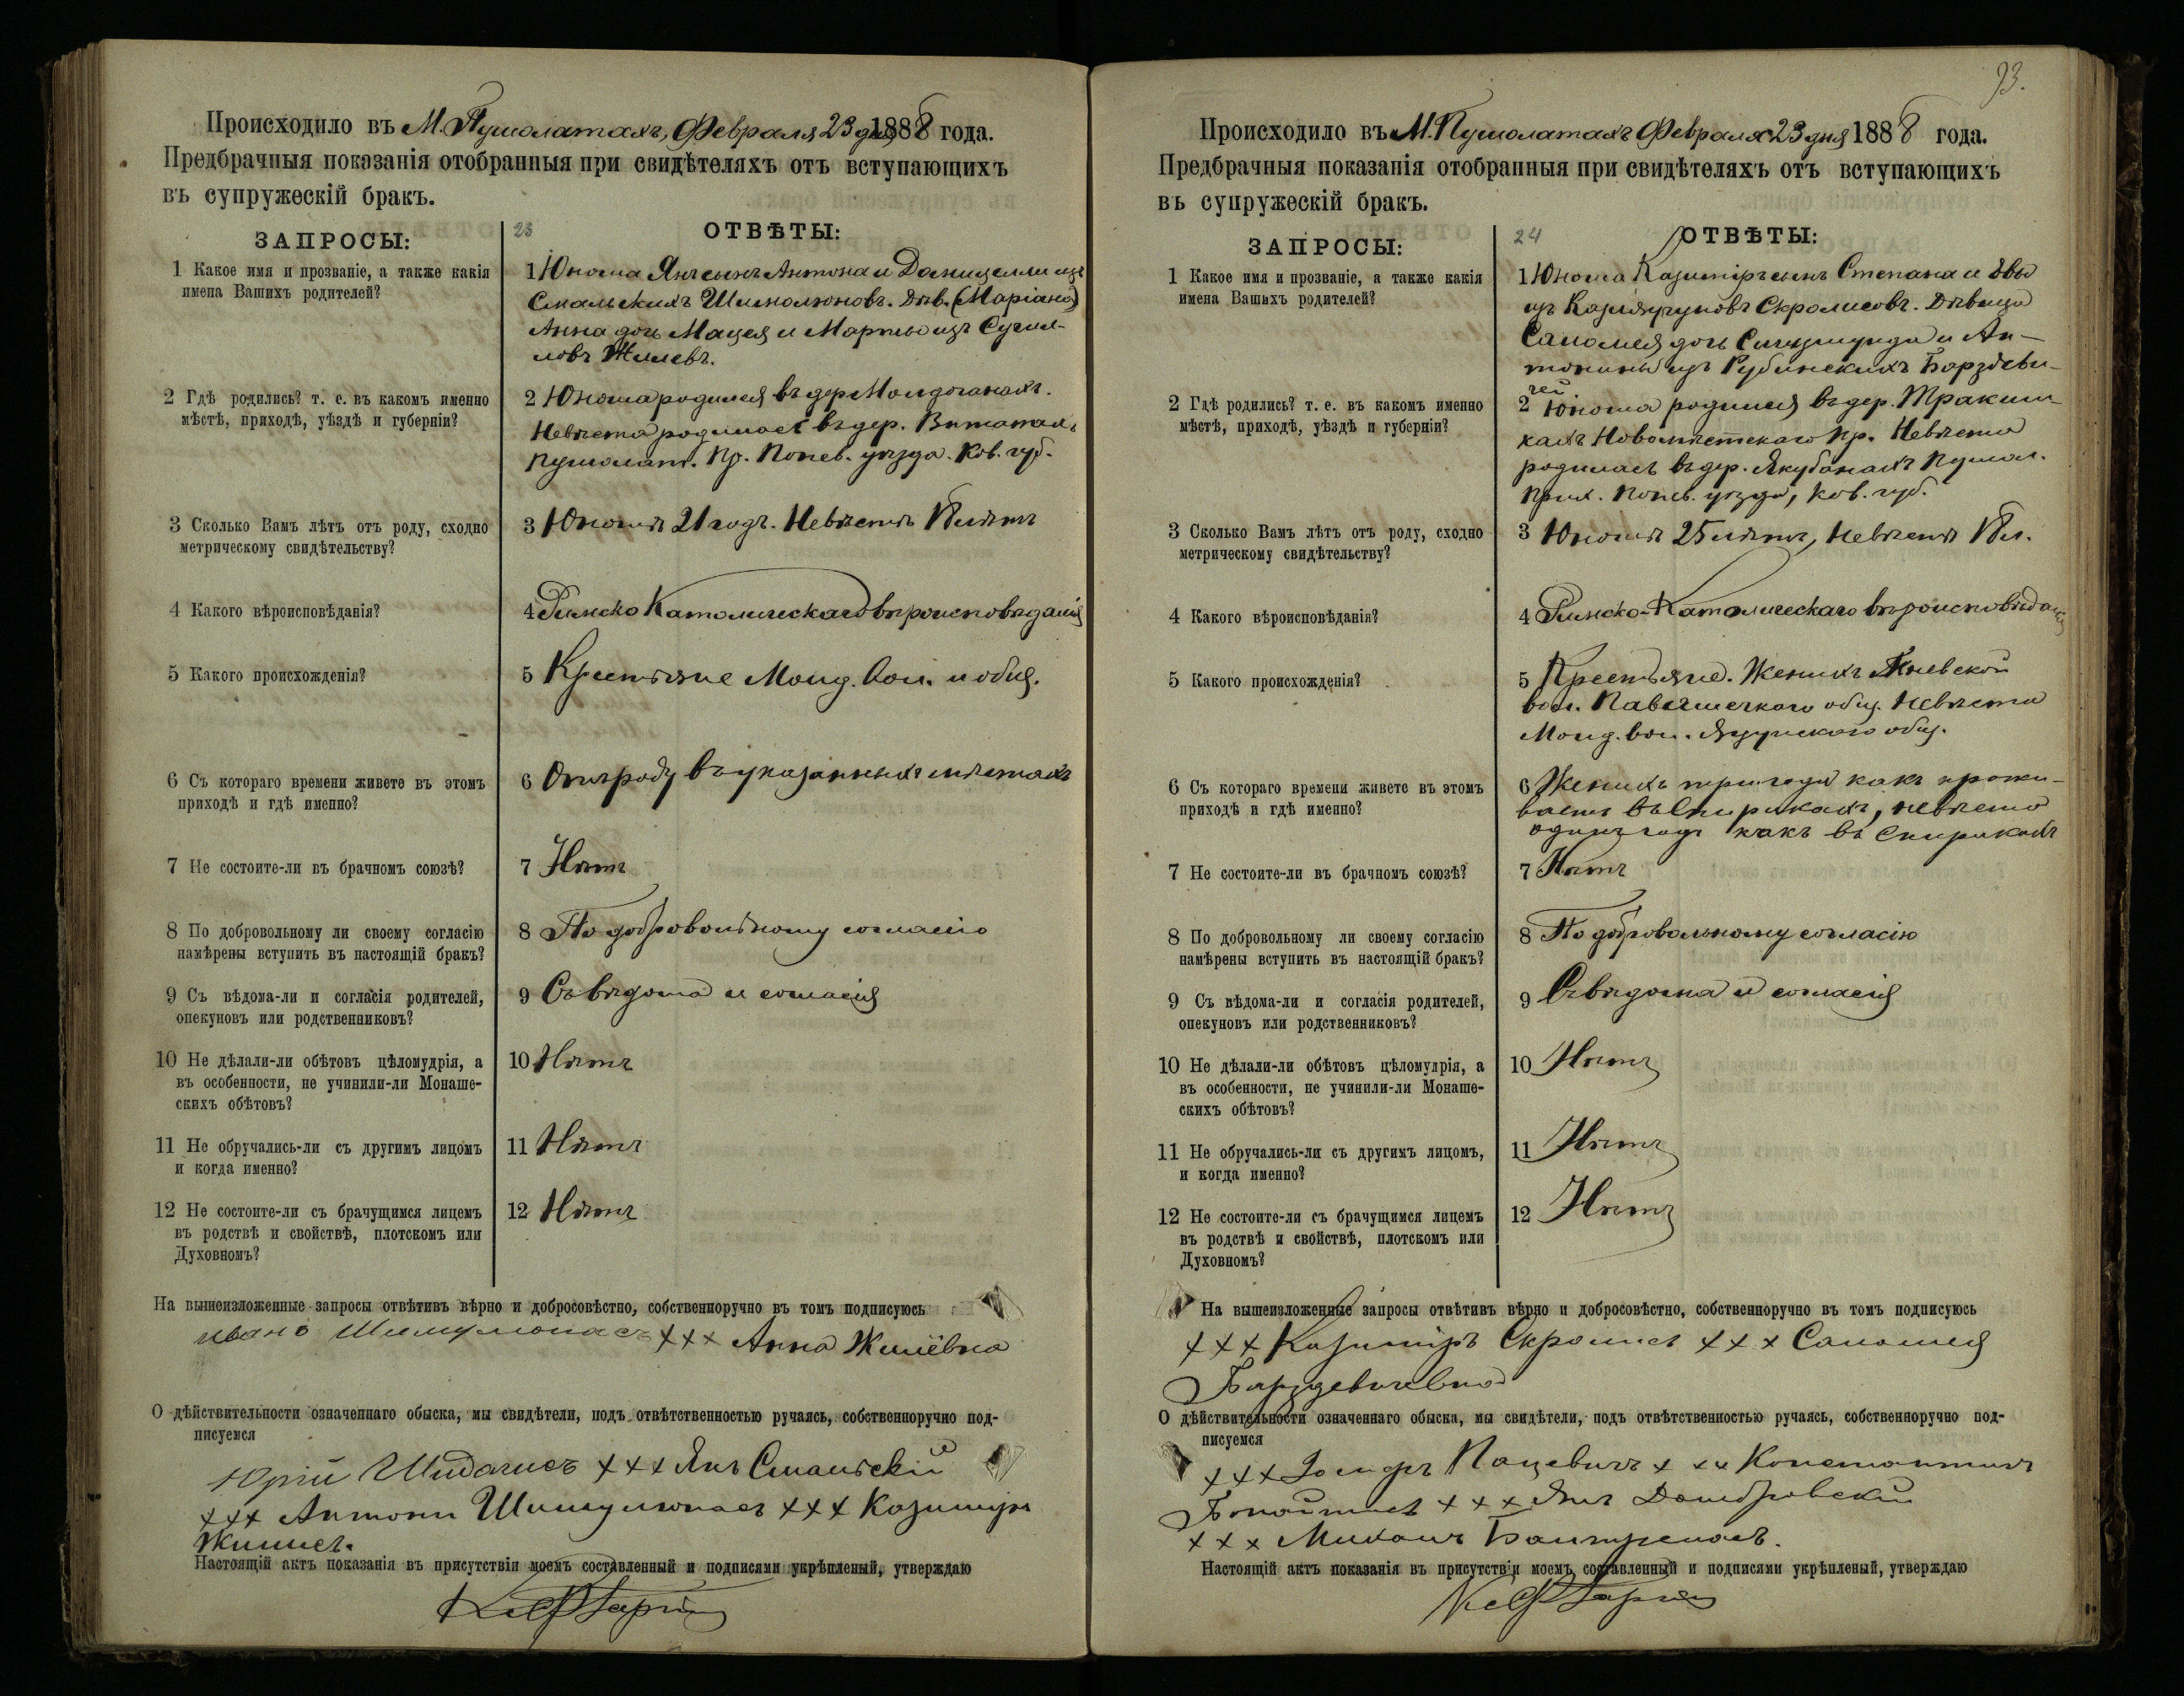 Происходило въ М. Пушолатахъ, Февраля 23 дня 1888 года.
Предбрачныя показанія отобранныя при свидѣтеляхъ отъ вступающихъ
въ супружескій бракъ.
ЗАПРОСЫ:
23 ОТВѢТЫ:
1 Какое имя и прозваніе, а также какія
имена Вашихъ родителей?
1 Юноша Янъ сынъ Антона и Даницелли изъ
Смальскихъ Шимолюновъ. Дѣв. (Маріана)
Анна дочь Мацея и Марты изъ
Жилевъ.
2 Гдѣ родились? т. е. въ какомъ именно
мѣстѣ, приходѣ, уѣздѣ и губерніи?
2 Юноша родился въ дер. Молдочанахъ.
Невѣста родилась въ дер. Витаташ
Пушолат. Пр. Понев. уѣзда. Ков. губ.
3 Сколько Вамъ лѣтъ отъ роду, сходно
метрическому свидѣтельству?
3 Юношѣ 21 годъ. Невѣстѣ 18 лѣтъ
4 Какого вѣроисповѣданія?
4 Римско Католическаго вѣроисповѣданія
5 Какого происхожденія?
5 Крестьяне Моиг. Вол. и общ.
6 Съ котораго времени живете въ этомъ
приходѣ и гдѣ именно?
6 Отъ роду въ указанныхъ мѣстахъ
7 Не состоите-ли въ брачномъ союзѣ?
7 Нѣтъ
8 По добровольному ли своему согласію
намѣрены вступить въ настоящій бракъ?
8 По добровольному согласію
9 Съ вѣдома-ли и согласія родителей,
опекуновъ или родственниковъ?
9 Съ вѣдома и согласія
10 Не дѣлали-ли обѣтовъ цѣломудрія, а
въ особенности, не учинили-ли Монаше-
скихъ обѣтовъ?
10 Нѣтъ
11 Не обручались-ли съ другимъ лицомъ
и когда именно?
11 Нѣтъ
12 Не состоите-ли съ брачущимся лицемъ
въ родствѣ и свойствѣ, плотскомъ или
Духовномъ?
12 Нѣтъ
На вышеизложенные запросы отвѣтивъ вѣрно и добросовѣстно, собственноручно въ томъ подписуюсь
Иванъ Шимулюнасъ ××× Анна Жилёвна
О дѣйствительности означеннаго обыска, мы свидѣтели, подъ отвѣтственностью ручаясь, собственноручно под-
писуемся
Юрій Шидагисъ ××× Янъ Смальскій
××× Антони Шимулюнасъ ××× Казимиръ
Жилисъ.
Настоящій актъ показанія въ присутствіи моемъ составленный и подписями укрѣпленый, утверждаю
93.
Происходило въ М. Пушолатахъ Февраля 23 дня 1888 года.
Предбрачныя показанія отобранныя при свидѣтеляхъ отъ вступающихъ
въ супружескій бракъ.
ЗАПРОСЫ:
24 ОТВѢТЫ:
1 Какое имя и прозваніе, а также какія
имена Вашихъ родителей?
1 Юноша Казимiръ сынъ Степана и Эвы
изъ Скролисовъ. Дѣвица
Саломея дочь Сигизмунда и Ан-
тонины изъ Рубинскихъ Барздеви-
чей
2 Гдѣ родились? т. е. въ какомъ именно
мѣстѣ, приходѣ, уѣздѣ и губерніи?
2 Юноша родился въ дер. Тракиш-
кахъ Новомѣстскаго Пр. Невѣста
родилась въ дер. Якубанахъ Пушол.
Прих. Понев. уѣзда, Ков. губ.
3 Сколько Вамъ лѣтъ отъ роду, сходно
метрическому свидѣтельству?
3 Юношѣ 25 лѣтъ, Невѣстѣ 18 л.
4 Какого вѣроисповѣданія?
4 Римско-Католическаго вѣроисповѣданія
5 Какого происхожденія?
5 Крестьяне. Женихъ
вол. общ. Невѣста
Моиг. вол. общ.
6 Съ котораго времени живете въ этомъ
приходѣ и гдѣ именно?
6 Женихъ три года какъ прожи-
ваетъ въ Спиракахъ, невѣста
одинъ годъ какъ въ Спиракахъ
7 Не состоите-ли въ брачномъ союзѣ?
7 Нѣтъ
8 По добровольному ли своему согласію
намѣрены вступить въ настоящій бракъ?
8 По добровольному согласію
9 Съ вѣдома-ли и согласія родителей,
опекуновъ или родственниковъ?
9 Съ вѣдома и согласія
10 Не дѣлали-ли обѣтовъ цѣломудрія, а
въ особенности, не учинили-ли Монаше-
скихъ обѣтовъ?
10 Нѣтъ
11 Не обручались-ли съ другимъ лицомъ,
и когда именно?
11 Нѣтъ
12 Не состоите-ли съ брачущимся лицемъ
въ родствѣ и свойствѣ, плотскомъ или
Духовномъ?
12 Нѣтъ
На вышеизложенные запросы отвѣтивъ вѣрно и добросовѣстно, собственноручно въ томъ подписуюсь
××× Казимiръ Скролисъ ××× Саломея
Барздевичевна
О дѣйствительности означеннаго обыска, мы свидѣтели, подъ отвѣтственностью ручаясь, собственноручно под-
писуемся
××× Пацевичъ ××× Константинъ
××× Янъ Домбровскій
××× Михаилъ
Настоящій актъ показанія въ присутствіи моемъ составленный и подписями укрѣпленый, утверждаю